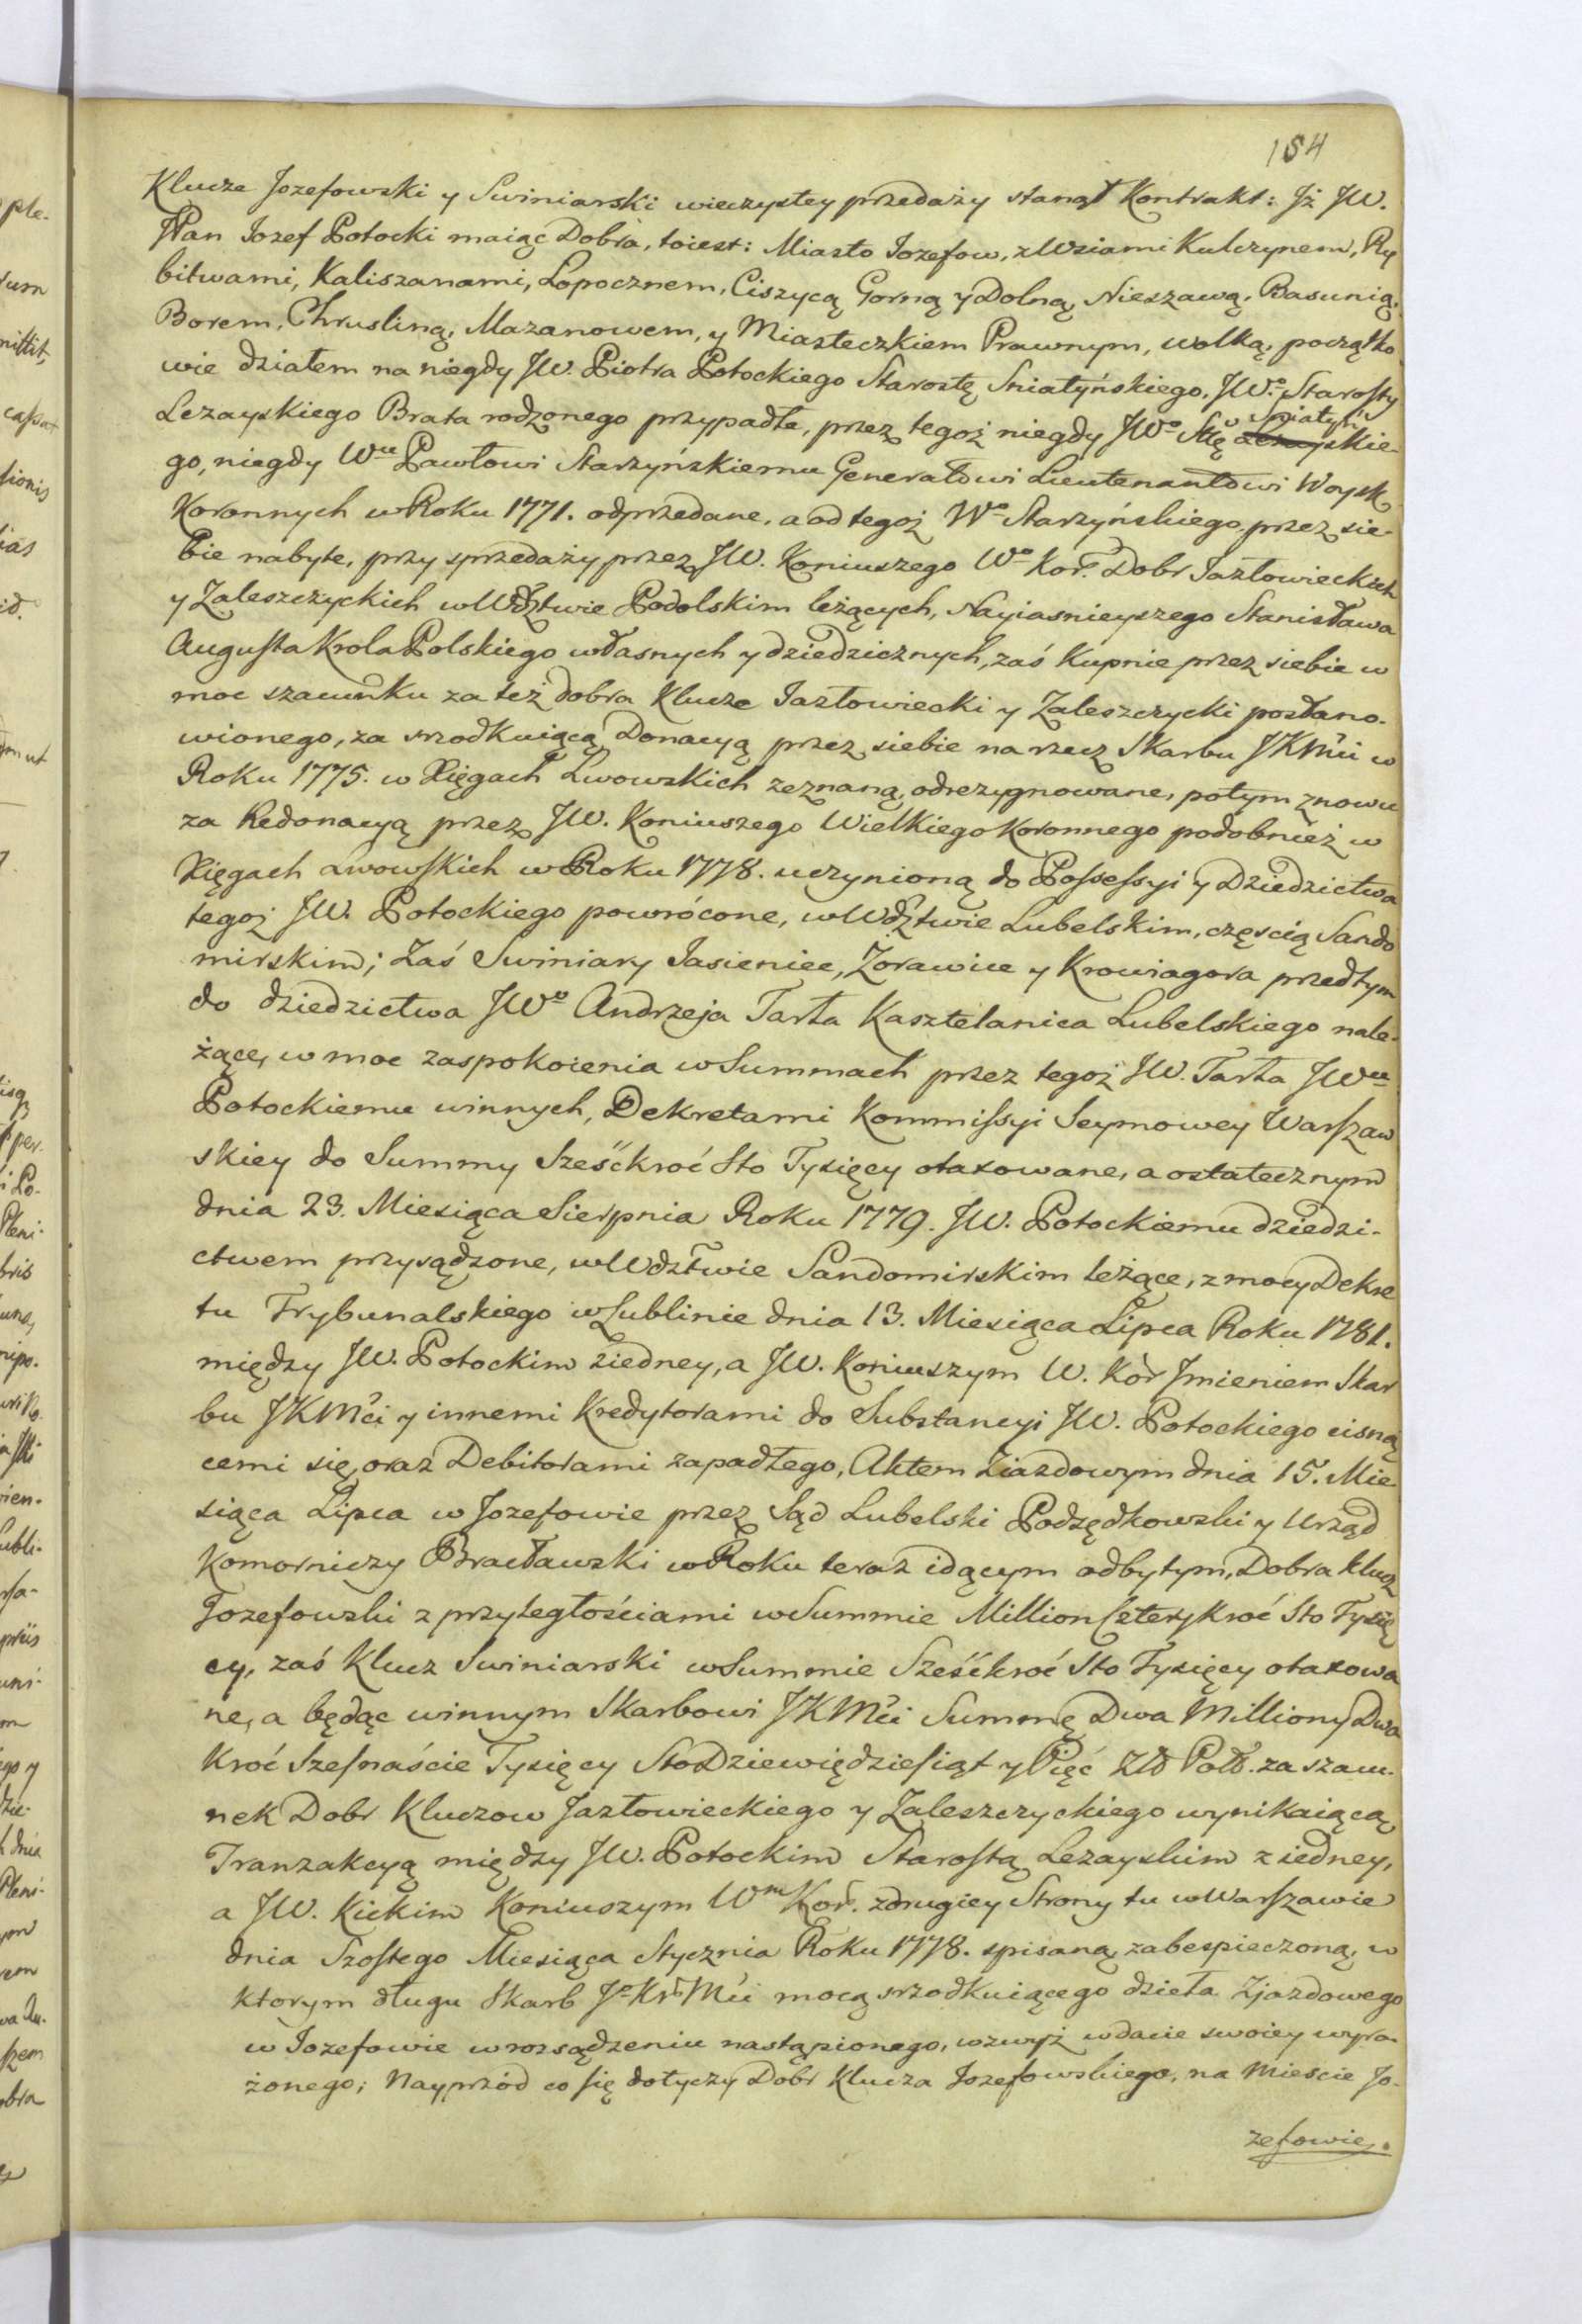 184
Klucze Jozefowski y Swiniarski wieczystey przedaży stanął Kontrakt: Jż JW.
JPan Jozef Potocki maiąc Dobra, toiest: Miasto Jozefow, z Wsiami Kulczynem, Ry
bitwami, Kaliszanami, Lopocznem, Ciszycą Gorną y Dolną, Nieszawą, Basunią,
Borem, Chrusliną, Mazanowem, y Miasteczkiem Prawnym, wolką, początko
wie działem na niegdy JW. Piotra Potockiego Starostę Sniatyńskiego, JWo. Starosty
Leżayskiego Brata rodzonego przypadłe, przez tegoż niegdy JWo Stę Sniatyńskie-
go, niegdy Wu Pawłowi Starzyńskiemu Generałowi Lieutenantowi Woysk
Koronnych w Roku 1771. odprzedane, a od tegoż Wo Starzyńskiego przez sie-
bie nabyte, przy sprzedaży przez JW. Koniuszego Wo Kor. Dobr Jazłowieckich
y Zaleszczyckich w Wdztwie Podolskim leżących, Nayiasnieyszego Stanisława
Augusta Krola Polskiego własnych y dziedzicznych, zaś Kupnie przez siebie w
moc szacunku za też dobra Klucze Jazłowiecki y Zaleszczycki postano-
wionego, za srzodkuiącą Donacyą przez siebie na rzecz Skarbu JKMci w
Roku 1775. w Xięgach Lwowskich zeznaną, odrezygnowane, potym znowu
za Redonacyą przez JW. Koniuszego Wielkiego Koronnego podobnież w
Xięgach Lwowskich w Roku 1778. uczynioną do Possessyi y Dziedzictwa
tegoż JW. Potockiego powrócone, w Wdztwie Lubelskim, częscią Sando
mirskim; Zaś Swiniary Jasieniec, Zorawice y Krowiagora przedtym
do dziedzictwa JWo Andrzeja Tarła Kasztelanica Lubelskiego nale-
żące, w moc zaspokoienia w Summach przez tegoż JW. Tarła JWu
Potockiemu winnych, Dekretami Kommissyi Seymowey Warszaw
skiey do Summy Sześćkroć Sto Tysięcy otaxowane, a ostatecznym
dnia 23. Miesiąca Sierpnia Roku 1779. JW. Potockiemu dziedzi-
ctwem przysądzone, w Wdztwie Sandomirskim leżące, z mocy Dekre
tu Trybunalskiego w Lublinie dnia 13. Miesiąca Lipca Roku 1781.
między JW. Potockim ziedney, a JW. Koniuszym W. Kor Jmieniem Skar
bu JKMci y innemi Kredytorami do Substancyi JW. Potockiego cisną
cemi się, oraz Debitorami zapadłego, Aktem Ziazdowym dnia 15. Mie
siąca Lipca w Jozefowie przez Sąd Lubelski Podsędkowski y Urząd
Komorniczy Bracławski w Roku teraz idącym odbytym, Dobra klucz
Jozefowski z przyległościami w Summie Million Czterykroć Sto Tysię
cy, zaś Klucz Swiniarski w Summie Sześćkroć Sto Tysięcy otaxowa
ne, a będąc winnym Skarbowi JKMci Summę Dwa Milliony Dwa
kroć Szesnaście Tysięcy Sto Dziewiędziesiąt y Pięć Zło Pols. za szacu-
nek Dobr Kluczow Jazłowieckiego y Zaleszczyckiego wynikaiącą
Tranzakcyą między JW. Potockim Starostą Leżayskim z iedney,
a JW. Kickim Koniuszym Wm Kor. z drugiey Strony tu w Warszawie
dnia Szostego Miesiąca Stycznia Roku 1778. spisaną, zabespieczoną, w
ktorym długu Skarb Jo Kr Mci mocą srzodkuiącego dzieła Zjazdowego
w Jozefowie w rozsądzeniu nastąpionego, wzwyż w dacie swoiey wyra-
żonego; Nayprzód co się dotyczy Dobr Klucza Jozefowskiego, na Miescie Jo-
zefowie.